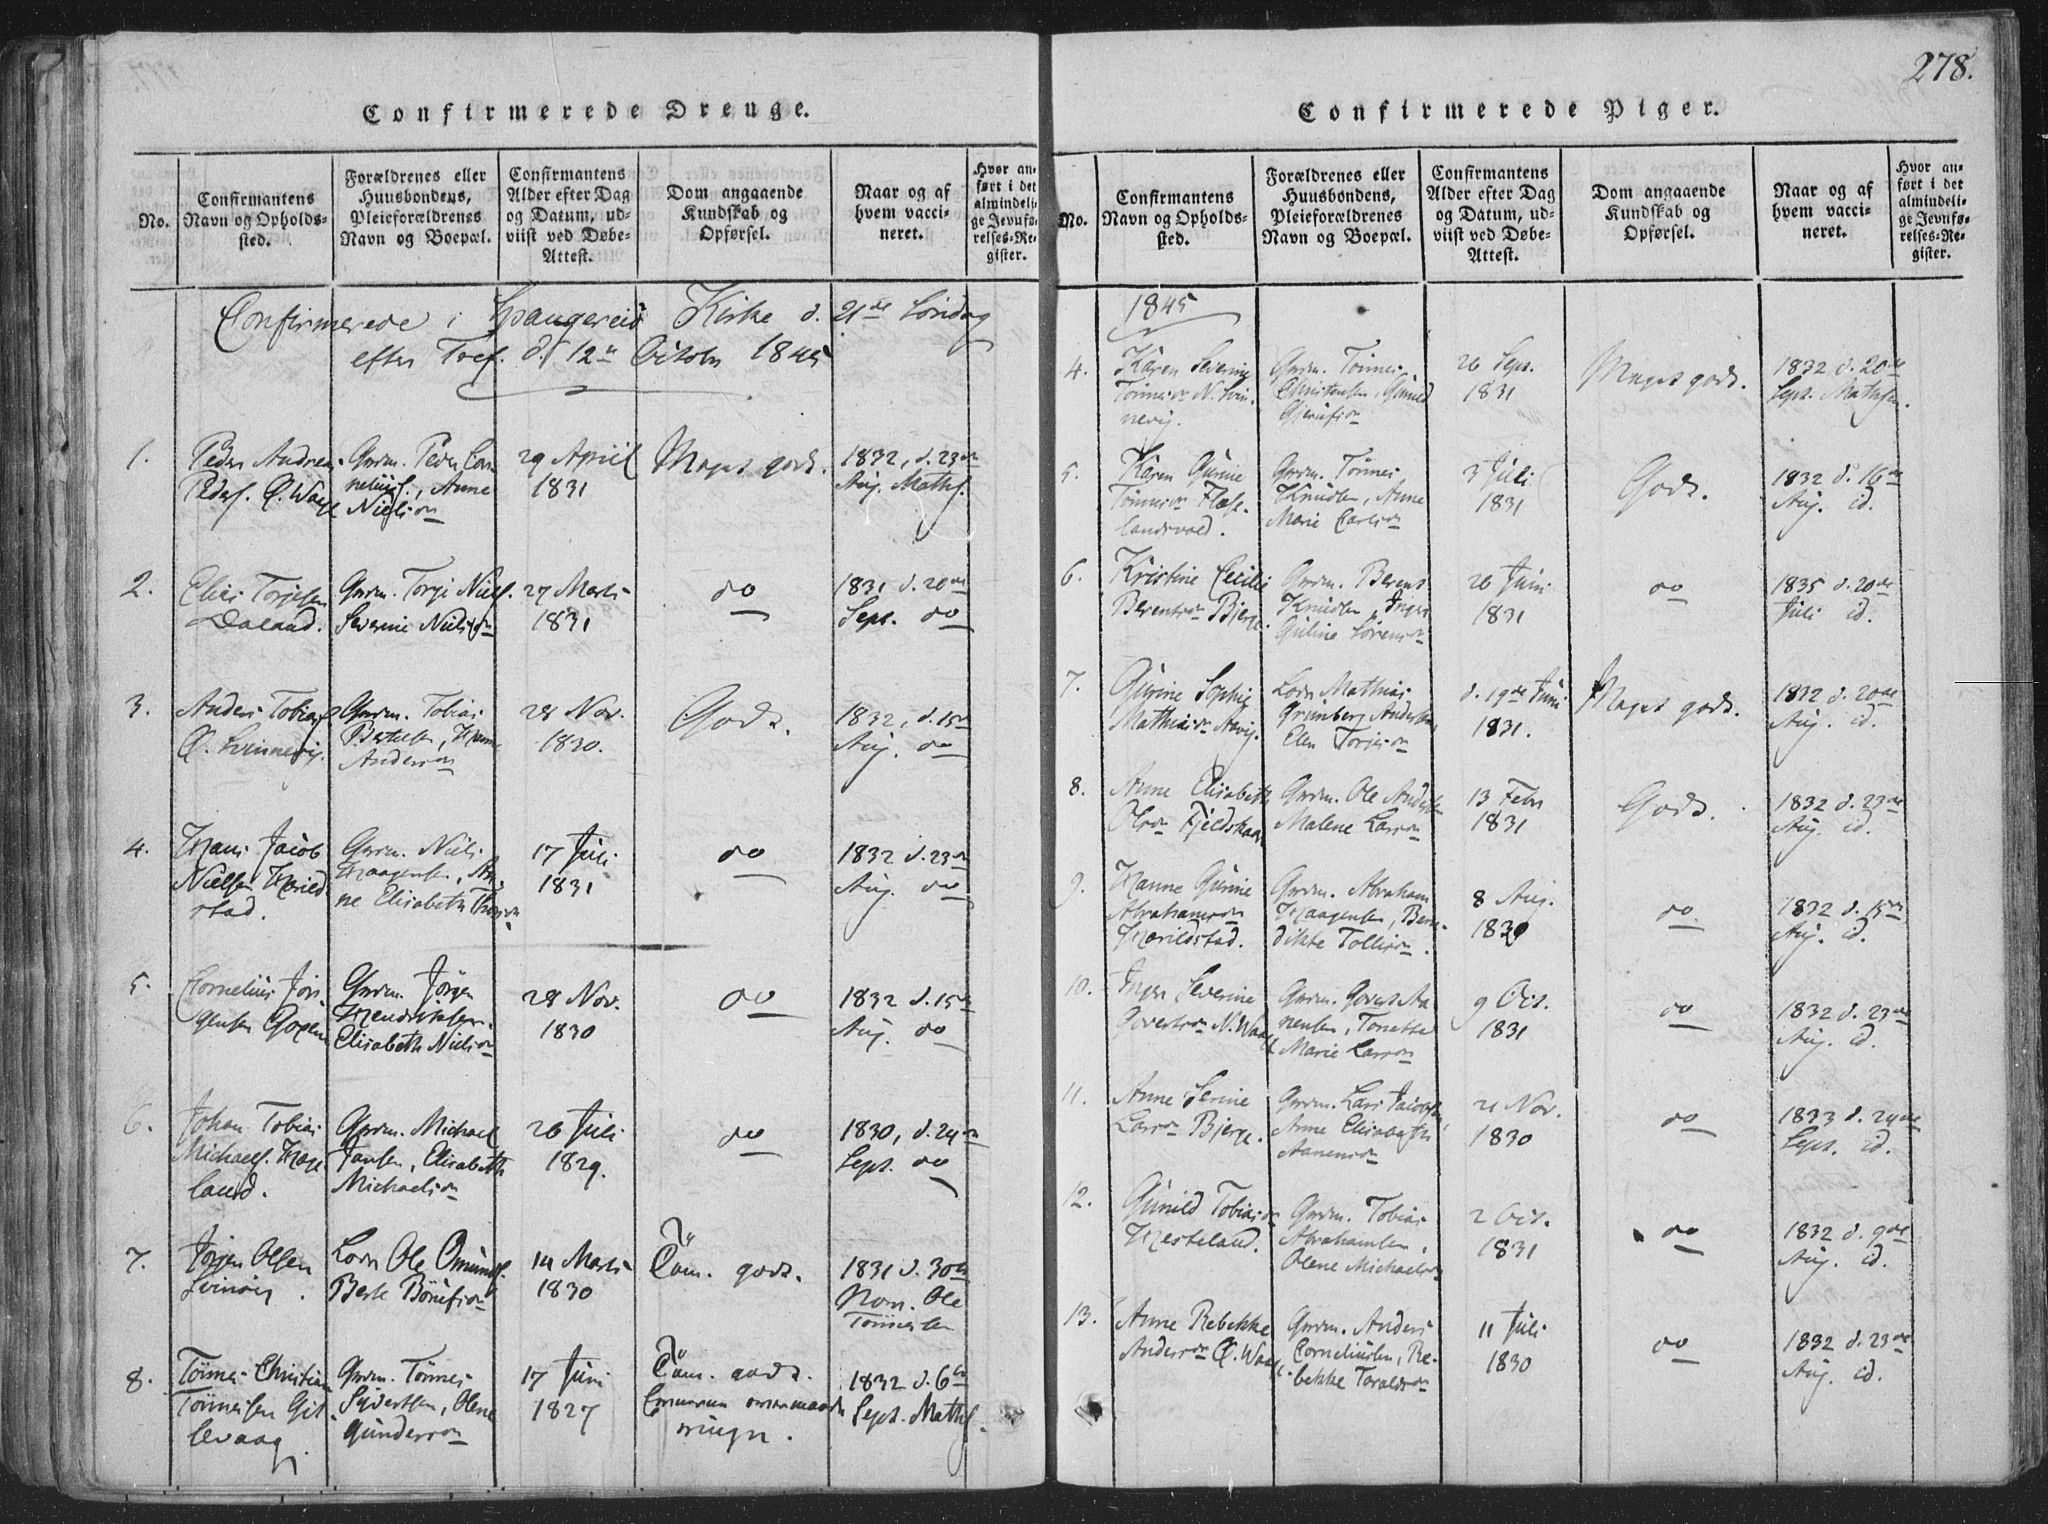 278.
Confirmerede Drenge.
No.
Confirmantens
Navn og Opholds-
sted.
Forældrenes eller
Huusbondens,
Pleieforældrenes
Navn og Boepæl.
Confirmantens
Alder efter Dag
og Datum, ud-
viist ved Døbe-
Attest.
Dom angaaende
Kundskab og
Opførsel.
Naar og af
hvem vacci-
neret.
Hvor an-
ført i det
almindeli-
ge Jevnfø-
relses-Re-
gister.
Confirmerede i Spangereid Kirke d. 21de Søndag
efter Tref. d. 12te October 1845
1.
Peder Andreas
Pedersf. Ø. Waage
Grdm. Peder Cor-
neliusf., Anne
Nielsdn
29 April
1831
Meget godt.
1832, d. 23de
Aug. Mathf.
2.
Elias Torjesen
Daland.
Grdm. Torje Nielsf.
Severine Nielsdn
27 Marts
1831
do
1831 d. 20de
Sept. do
3.
Anders Tobiasf.
Ø. Svinnevig.
Grdm. Tobias
Bertelsen, Hanne
Andersdn
28 Nov.
1830.
Godt.
1832, d. 15de
Aug. do
4.
Hans Jacob
Nielsen Harild-
stad.
Grdm. Niels
Haagensen, An-
ne Elisabeth
17 Juli
1831
do
1832 d. 23de
Aug. do
5.
Cornelius Jør-
gensen
Grdm. Jørgen
Hendriksen
Elisabeth Nielsdn
28 Nov.
1830
do
1832 d. 15de
Aug. do
6.
Johan Tobias
Michaelf. Høge-
land.
Grdm. Michael
Jansen, Elisabeth
Michaelsdn
26 Juli
1829.
do
1830, d. 24de
Sept. do
7.
Jørgen Olsen
Svinøig.
Lods Ole Omundsf.
Berte
14 Marts
1830
Tem. godt.
1831 d. 30te
Nov. Ole
Tønnesen
8.
Tønnes Christian
Tønnesen Git-
levaag
Grdm. Tønnes
Sivertsen, Olene
Gundersdn
17 Juni
1827
Tem. godt.
1832 d. 6te
Sept. Mathf.
Confirmerede Piger.
No.
Confirmantens
Navn og Opholds-
sted.
Forældrenes eller
Huusbondens,
Pleieforældrenes
Navn og Boepæl.
Confirmantens
Alder efter Dag
og Datum, ud-
viist ved Døbe-
Attest.
Dom angaaende
Kundskab og
Opførsel.
Naar og af
hvem vacci-
neret.
Hvor an-
ført i det
almindeli-
ge Jevnfø-
relses-Re-
gister.
1845
4.
Karen Severine
Tønnesdn N. Svin-
nevig.
Grdm. Tønnes
Christensen, Gunild
26 Sept.
1831
Meget godt.
1832 d. 20de
Sept. Mathsen.
5.
Karen Gurine
Tønnesdn
landsvold.
Grdm. Tønnes
Knudsen, Anne
Marie Carlsdn
3 Juli
1831
Godt.
1832 d. 16de
Aug. id.
6.
Kristine Cecilie
Berentsdn Bjerge.
Grdm. Berent
Knudsen, Inger
Guline Sørensdn
26 Juni
1831
do
1835 d. 20de
Juli id.
7.
Gurine Sophie
Mathiasdn Aavig.
Lods Mathias
Grunberg Andersen,
Elen Torjesdn
d. 19de Juni
1831.
Meget godt.
1832 d. 20de
Aug. id.
8.
Anne Elisabeth
Olsdn Fjeldskaar
Grdm. Ole Andersen
Malene Larsdn
13 Febr
1831
Godt.
1832 d. 23de
Aug. id.
9.
Hanne Gurine
Abrahamsdn
Harildstad.
Grdm. Abraham
Haagensen, Bene-
dikte Tollisdn
8 Aug.
1830
do.
1832 d. 15de
Aug. id.
10.
Inger Severine
Govertsdn N. Waage
Grdm. Govert Aa-
nensen, Tonette
Marie Larsdn
9 Oct.
1831
do
1832 d. 23de
Aug. id.
11.
Anne Serine
Larsdn Bjerge.
Grdm. Lars Jacobsen,
Anne Elisabeth
Aanensdn
21 Nov.
1830
do
1833 d. 24de
Sept. id.
12.
Gunild Tobiasdn
Hesteland.
Grdm. Tobias
Abrahamsen,
Olene Michaelsdn
2 Oct.
1831
do
1832 d. 9de
Aug. id.
13.
Anne Rebekke
Andersdn Ø. Waage.
Grdm. Anders
Corneliusen, Re-
bekke Taraldsdn
11 Juli
1830
do
1832 d. 23de
Aug. id.